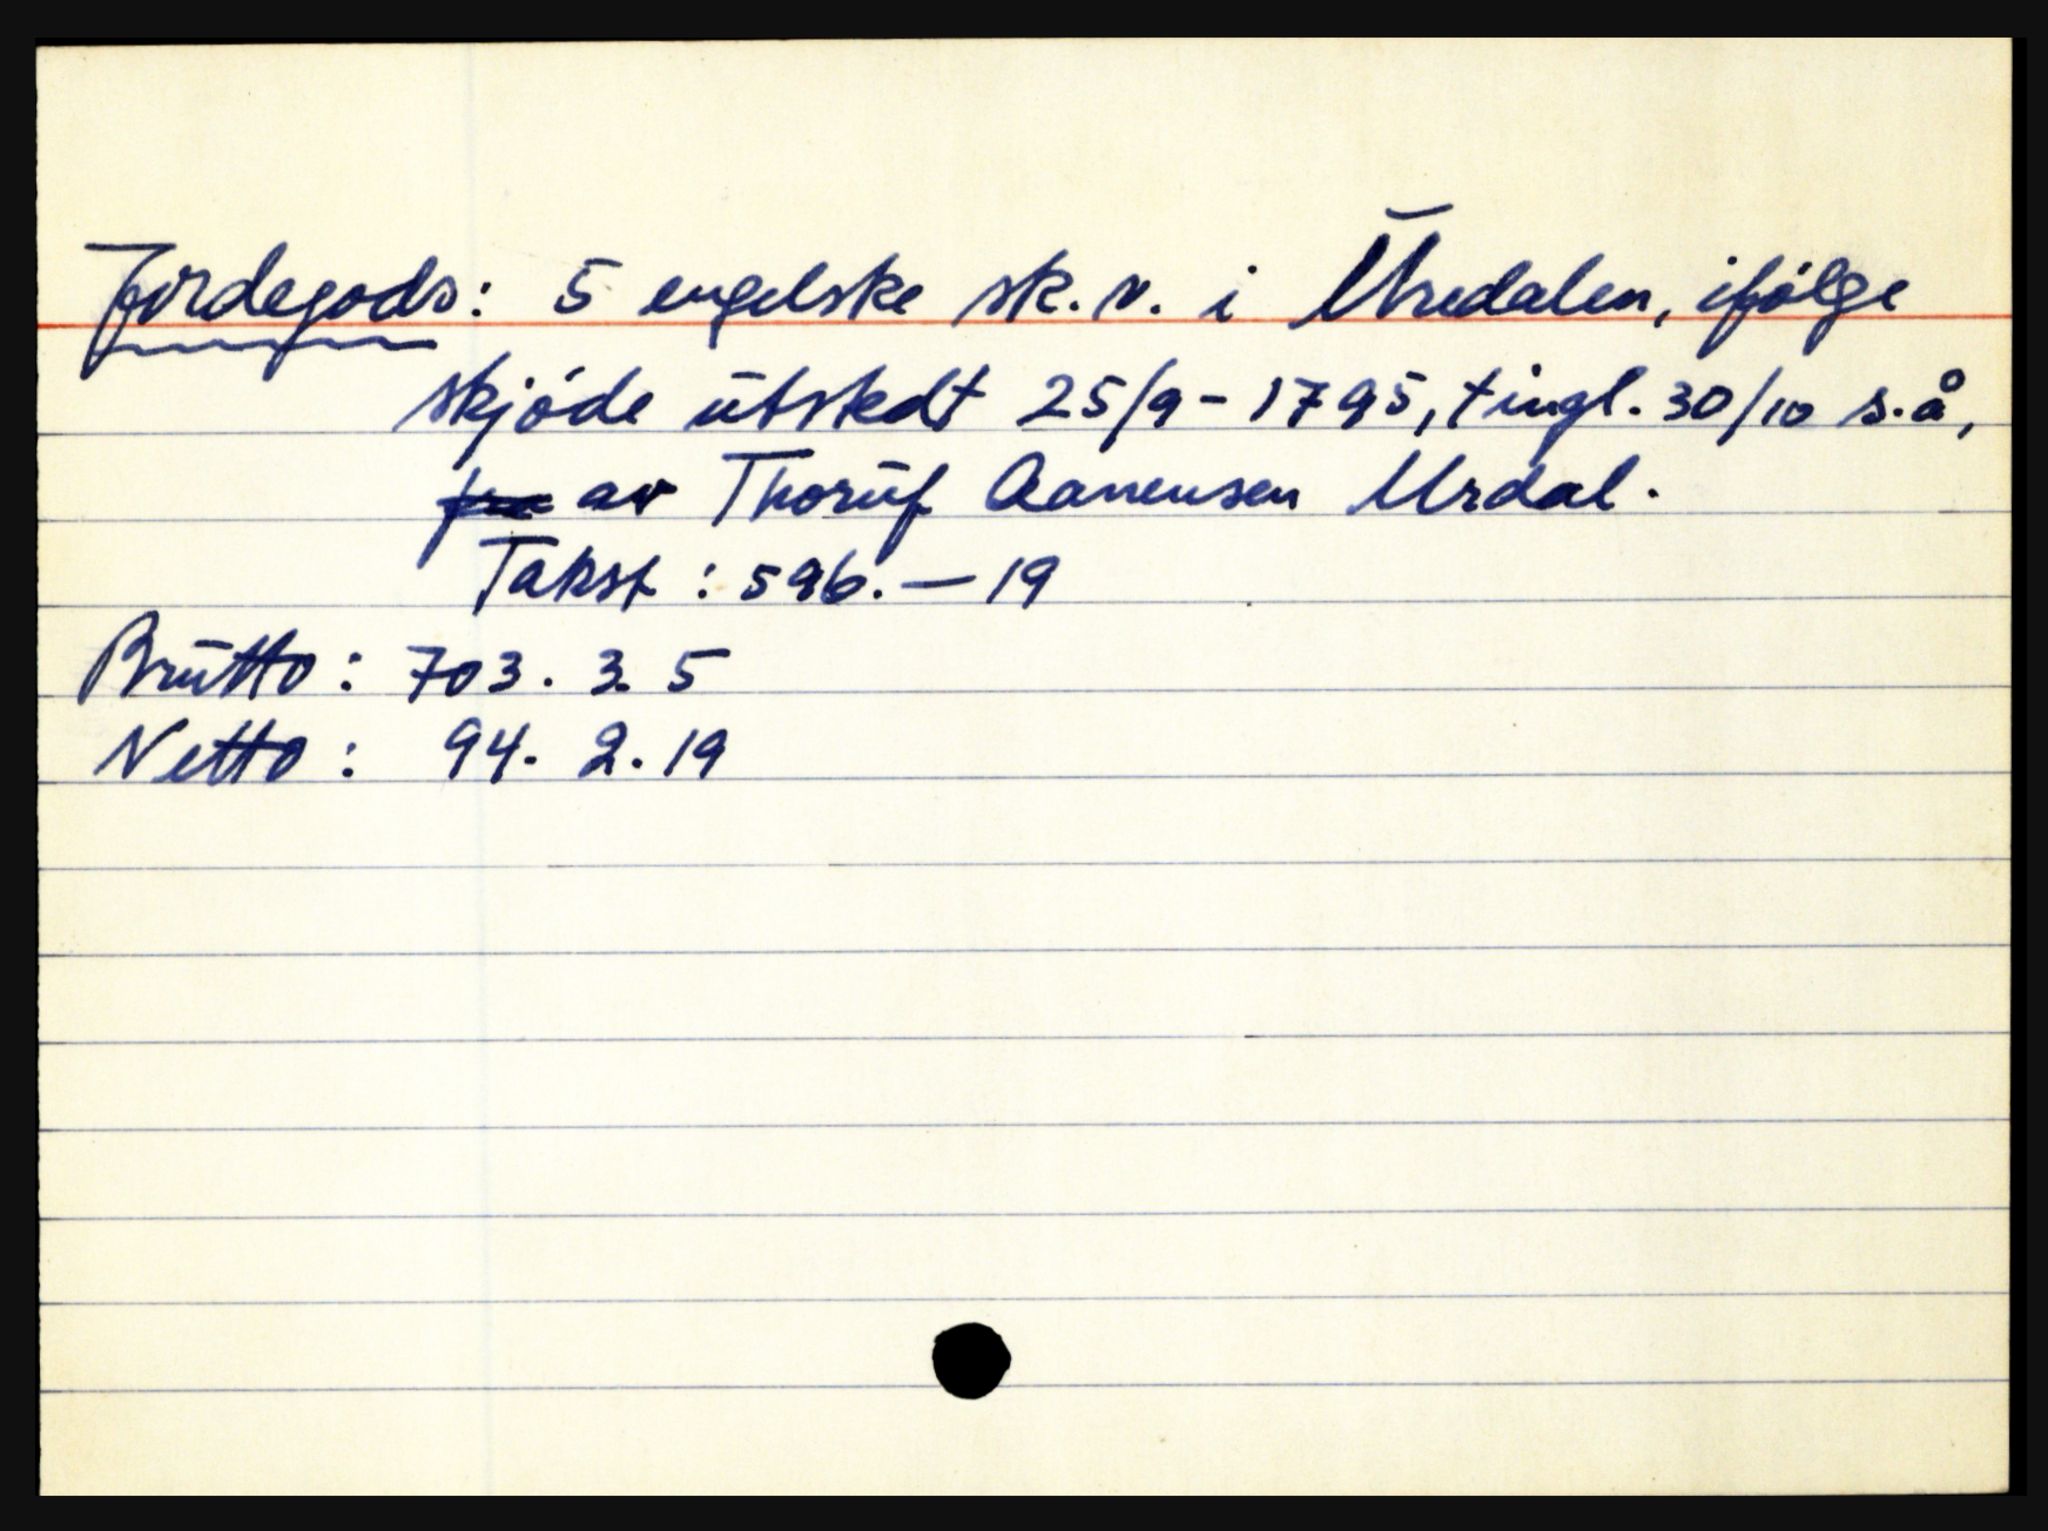 Jordegods: 5 engelske sk. v. i Uredalen, ifölge
skjöde utstedt 25/9 - 1795, tingl. 30/10 s.å,
av Thoruf Aanensen Urdal.
Takst: 596. — 19
Brutto: 703. 3. 5
Netto: 94. 2. 19